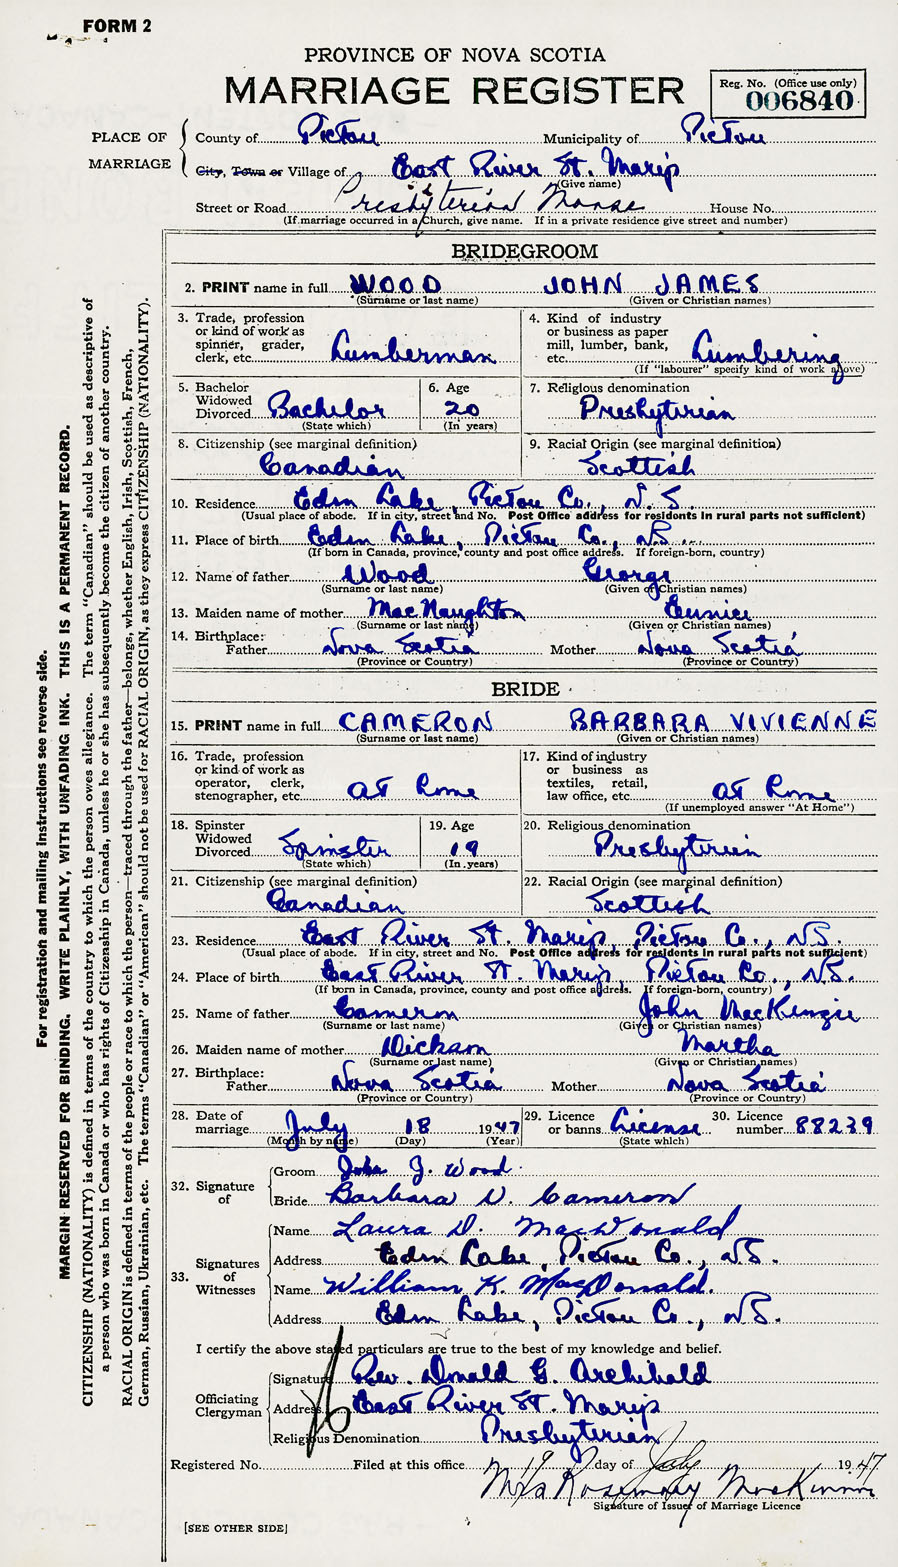 FORM 2
PROVINCE OF NOVA SCOTIA
MARRIAGE REGISTER
Reg. No. (Office use only)
006840
PLACE OF MARRIAGE
County of Pictou Municipality of Pictou
City, Town or Village of East River St. Marys
(Give name)
Street or Road Presbyterian Manse House No.
(If marriage occurred in a Church, give name. If in a private residence give street and number)
BRIDEGROOM
2. PRINT name in full WOOD JOHN JAMES
(Surname or last name) (Given or Christian names)
3. Trade, profession or kind of work as spinner, grader, clerk, etc. Lumberman
4. Kind of industry or business as paper mill, lumber, bank, etc. Lumbering
(If "labourer" specify kind of work above)
5. Bachelor Widowed Divorced Bachelor
(State which)
6. Age 20
(In years)
7. Religious denomination Presbyterian
8. Citizenship (see marginal definition) Canadian
9. Racial Origin (see marginal definition) Scottish
10. Residence Eden Lake, Pictou Co., N.S.
(Usual place of abode. If in city, street and No. Post Office address for residents in rural parts not sufficient)
11. Place of birth Eden Lake, Pictou Co., N.S.
(If born in Canada, province, county and post office address. If foreign-born, country)
12. Name of father Wood George
(Surname or last name) (Given or Christian names)
13. Maiden name of mother MacNaughton Eunice
(Surname or last name) (Given or Christian names)
14. Birthplace: Father Nova Scotia Mother Nova Scotia
(Province or Country) (Province or Country)
BRIDE
15. PRINT name in full CAMERON BARBARA VIVIENNE
(Surname or last name) (Given or Christian names)
16. Trade, profession or kind of work as operator, clerk, stenographer, etc. at Home
17. Kind of industry or business as textiles, retail, law office, etc. at Home
(If unemployed answer "At Home")
18. Spinster Widowed Divorced Spinster
(State which)
19. Age 19
(In years)
20. Religious denomination Presbyterian
21. Citizenship (see marginal definition) Canadian
22. Racial Origin (see marginal definition) Scottish
23. Residence East River St. Marys, Pictou Co., N.S.
(Usual place of abode. If in city, street and No. Post Office address for residents in rural parts not sufficient)
24. Place of birth East River St. Marys, Pictou Co., N.S.
(If born in Canada, province, county and post office address. If foreign-born, country)
25. Name of father Cameron John MacKenzie
(Surname or last name) (Given or Christian names)
26. Maiden name of mother Dickson Martha
(Surname or last name) (Given or Christian names)
27. Birthplace: Father Nova Scotia Mother Nova Scotia
(Province or Country) (Province or Country)
28. Date of marriage July 18 1947
(Month by name) (Day) (Year)
29. Licence or banns License
(State which)
30. Licence number 88239
32. Signature of
Groom John J. Wood
Bride Barbara V. Cameron
33. Signatures of Witnesses
Name Laura D. MacDonald
Address Eden Lake, Pictou Co., N.S.
Name William K. MacDonald.
Address Eden Lake, Pictou Co., N.S.
I certify the above stated particulars are true to the best of my knowledge and belief.
Officiating Clergyman
Signature Rev. Donald G. Archibald
Address East River St. Marys
Religious Denomination Presbyterian
Registered No. Filed at this office 19 day of July 1947
Mrs Rosemary MacKinnon
Signature of Issuer of Marriage Licence
[SEE OTHER SIDE]
For registration and mailing instructions see reverse side.
MARGIN RESERVED FOR BINDING. WRITE PLAINLY, WITH UNFADING INK. THIS IS A PERMANENT RECORD.
CITIZENSHIP (NATIONALITY) is defined in terms of the country to which the person owes allegiance. The term "Canadian" should be used as descriptive of
a person who was born in Canada or who has rights of Citizenship in Canada, unless he or she has subsequently become the citizen of another country.
RACIAL ORIGIN is defined in terms of the people or race to which the person—traced through the father—belongs, whether English, Irish, Scottish, French,
German, Russian, Ukrainian, etc. The terms "Canadian" or "American" should not be used for RACIAL ORIGIN, as they express CITIZENSHIP (NATIONALITY).